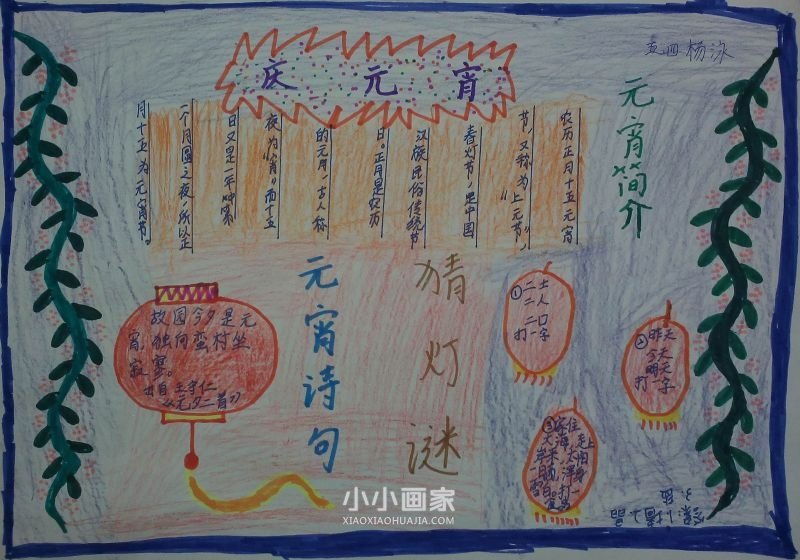 庆元宵
五四 杨泳
元宵简介
农历正月十五元宵
节,又称为“上元节”,
春灯节,是中国
汉族民俗传统节
日。正月是农历
的元月,古人称
夜为“宵。而十五
日又是一年
一个月圆之夜,所以正
月十五为元宵节。
故园今夕是元
宵,独向蛮村坐
寂寥。
出自 王守仁
《元夕二首》
元宵诗句
猜灯谜
①二土
二人
二口
打一字
②昨天
今天
明天
打一字
③
小小画家
XIAOXIAOHUAJIA.COM